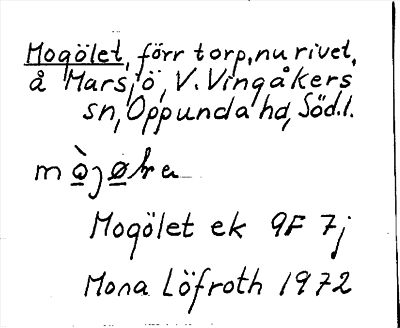 Mogölet, förr torp, nu rivet,
å Marsjö, V. Vingåkers
sn, Oppunda hd, Söd.l.
Mogölet ek 9F 7j
Mona Löfroth 1972